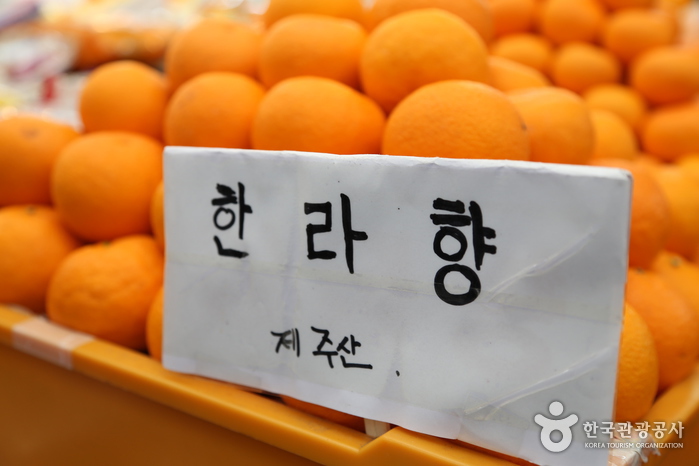 한라향
제주산.
한국관광공사
KOREA TOURISM ORGANIZATION